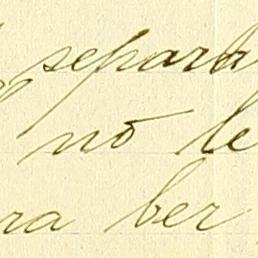 separa
no le
ra ber